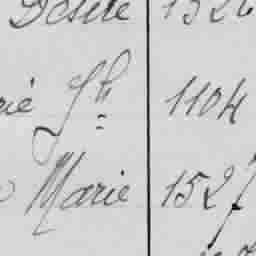 Désiré 152
ié Jh 1104
Marie 1527